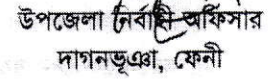 উপজেলা নির্বাহী অফিসার
দাগনভূঞা, ফেনী